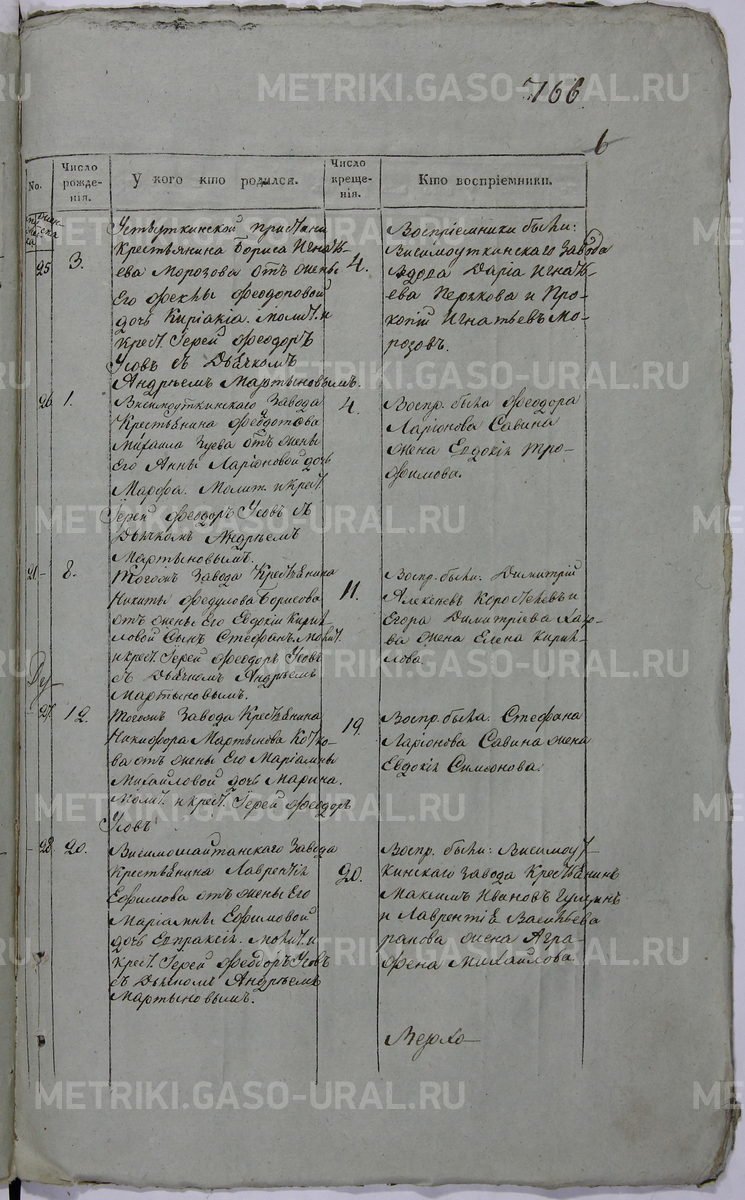 766
6
No.
Число рожденія.
У кого кто родился.
Число крещенія.
Кто воспріемники.
25
3.
Устьуткинской пристани
Крестьянина Бориса Игнать-
ева Морозова отъ жены
Его Феклы Феодоровой
дочь Киріакія. Молит. и
Крест. Іерей Феодоръ
Усовъ съ Дьячкомъ
Андрѣемъ Мартыновымъ.
4.
Воспріемники были:
Висимоуткинскаго Завода
вдова Дарія Игнать-
ева и Про-
копій Игнатьевъ Мо-
розовъ.
26
1.
Висимоуткинскаго Завода
Крестьянина Федотова
Михаила Зуева отъ жены
Его Анны Ларіоновой дочь
Марфа. Молит. и Крест.
Іерей Феодоръ Усовъ съ
Дьячкомъ Андрѣемъ
Мартыновымъ.
4.
Воспр. была Феодора
Ларіонова Савина
жена Евдокія Тро-
фимова.
20-
8.
Тогожъ Завода Крестьянина
Никиты Федулова Борисова
отъ жены Его Евдокіи Кирил-
ловой Сынъ Стефанъ. Молит.
и крест. Іерей Феодоръ Усовъ
съ Дьячкомъ Андрѣемъ
Мартыновымъ.
11.
Воспр. были: Димитрій
Алексеевъ и
Егора Димитріева
ва жена Елена Кирил-
лова.
- 27
12.
Тогожъ Завода Крестьянина
Никифора Мартынова
ва отъ жены Его Маріамны
Михайловой дочь Марина.
Молит. и крест. Іерей Феодоръ
Усовъ
19.
Воспр. была: Стефана
Ларіонова Савина жена
Евдокія Симеонова.
- 28
20.
Висимошайтанскаго Завода
Крестьянина Лаврентія
Ефимова отъ жены Его
Маріамны Ефимовой
дочь Евпраксія. Молит. и
крест. Іерей Феодоръ Усовъ
съ Дьячкомъ Андрѣемъ
Мартыновымъ.
20.
Воспр. были: Висимоут-
кинскаго Завода Крестьянинъ
Максимъ Ивановъ
и Лаврентія Васильева
жена Агра-
фена Михайлова.
Верхо-
METRIKI.GASO-URAL.RU